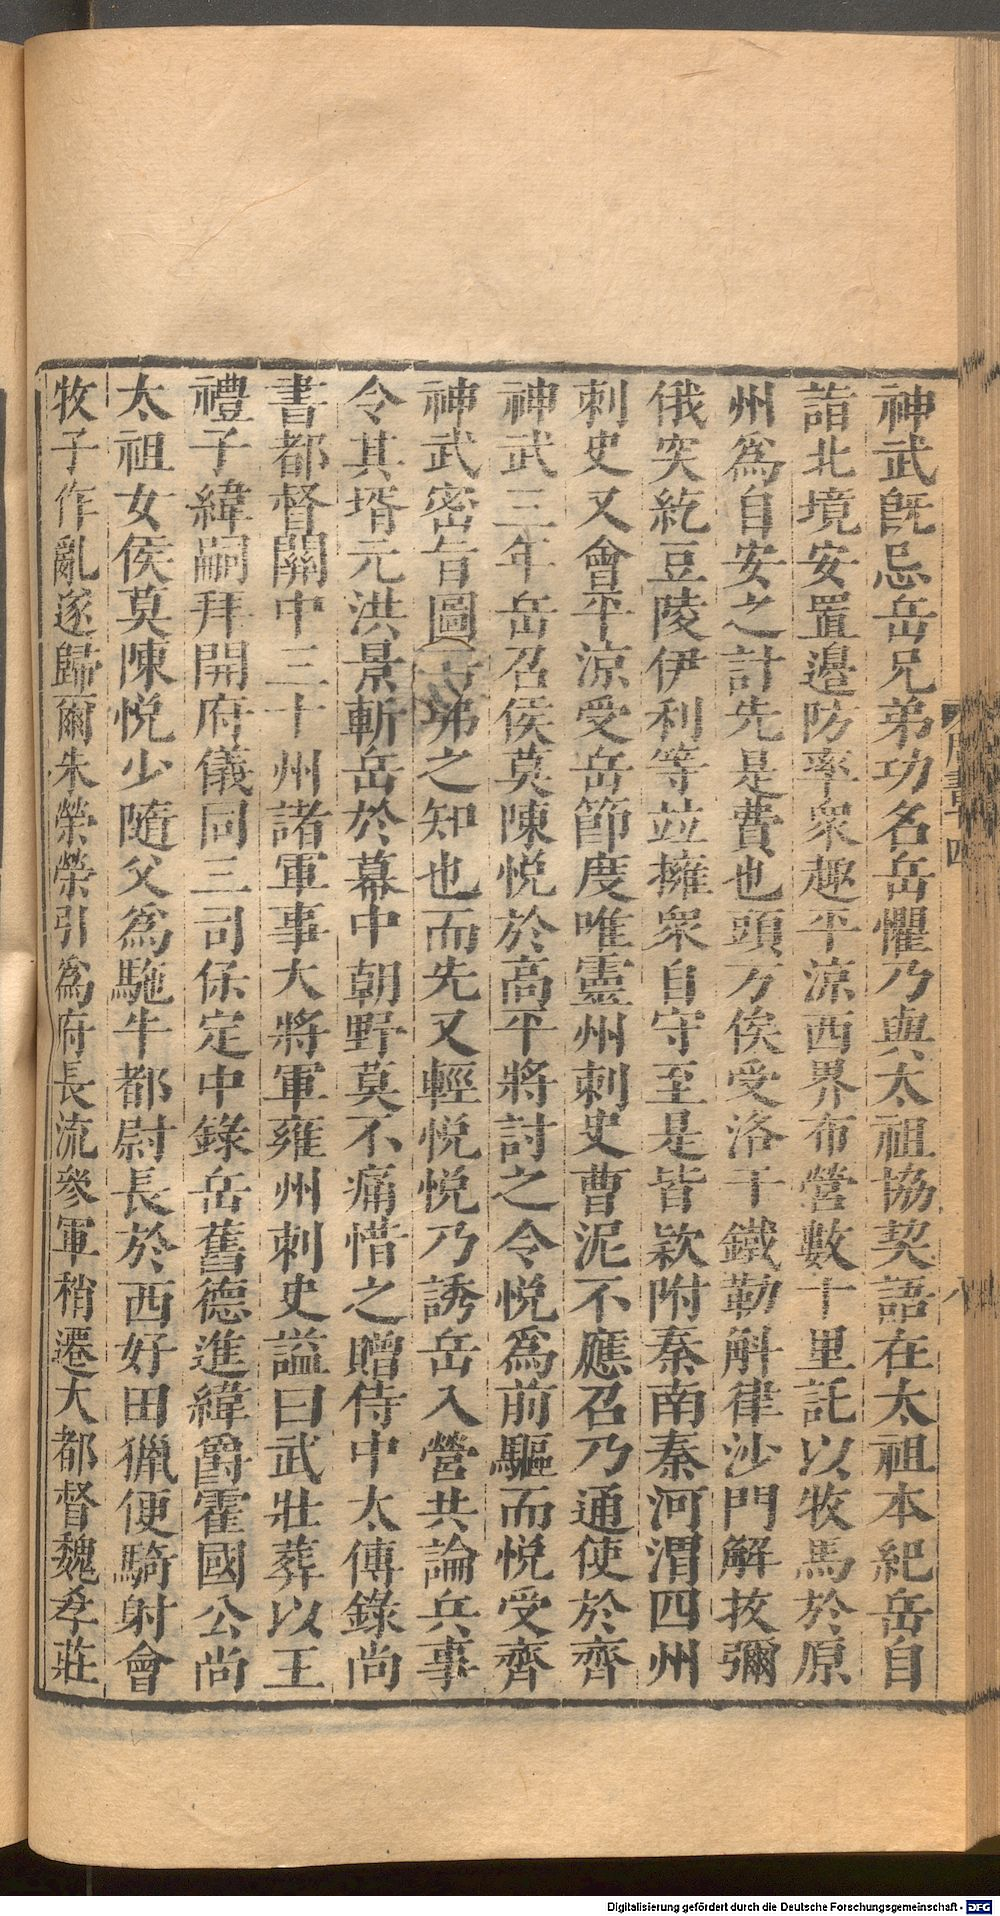 神武旣忌岳兄弟功名岳懼乃與太祖協契語在太祖本紀岳自
詣北境安置邊防率衆趣平涼西界布營數十里託以牧馬於原
州爲自安之計先是費也頭万俟受洛干鐵勒斛律沙門解拔彌
俄突紇豆陵伊利等竝擁衆自守至是皆款附秦南秦河渭四州
刺史又會平涼受岳節度唯靈州刺史曹泥不應召乃通使於齊
神武三年岳召侯莫陳悅於高平將討之令悅爲前驅而悅受齊
神武密旨圖岳弗之知也而先又輕悅悅乃誘岳入營共論兵事
令其壻元洪景斬岳於幕中朝野莫不痛惜之贈侍中太傅錄尚
書都督關中三十州諸軍事大將軍雍州刺史謚曰武壯葬以王
禮子緯嗣拜開府儀同三司保定中錄岳舊德進緯爵霍國公尚
太祖女侯莫陳悅少隨父爲駞牛都尉長於西好田獵便騎射會
牧子作亂遂歸爾朱榮榮引爲府長流參軍稍遷大都督魏孝莊
周書 四
八
Digitalisierung gefördert durch die Deutsche Forschungsgemeinschaft - DFG